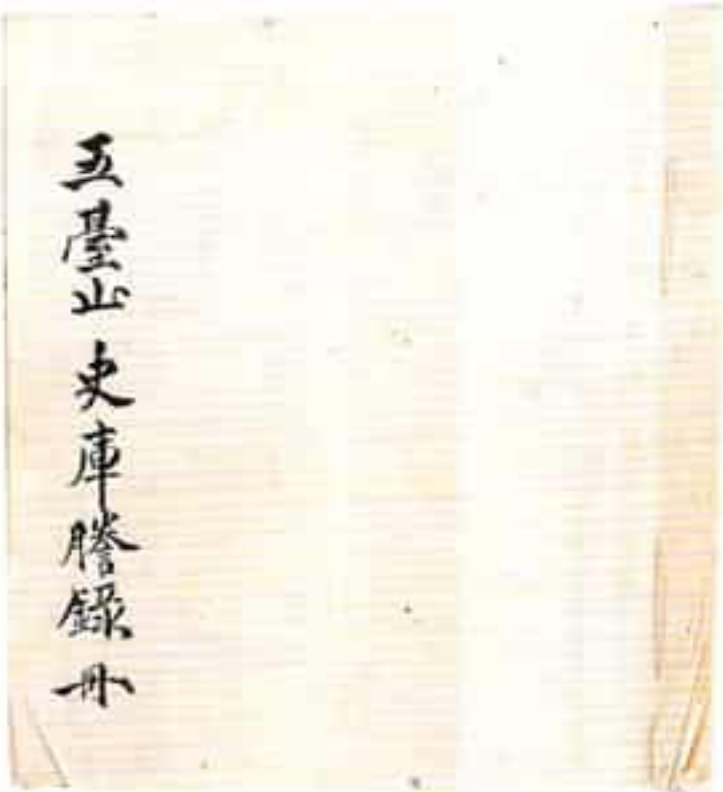 五臺山史庫謄錄冊